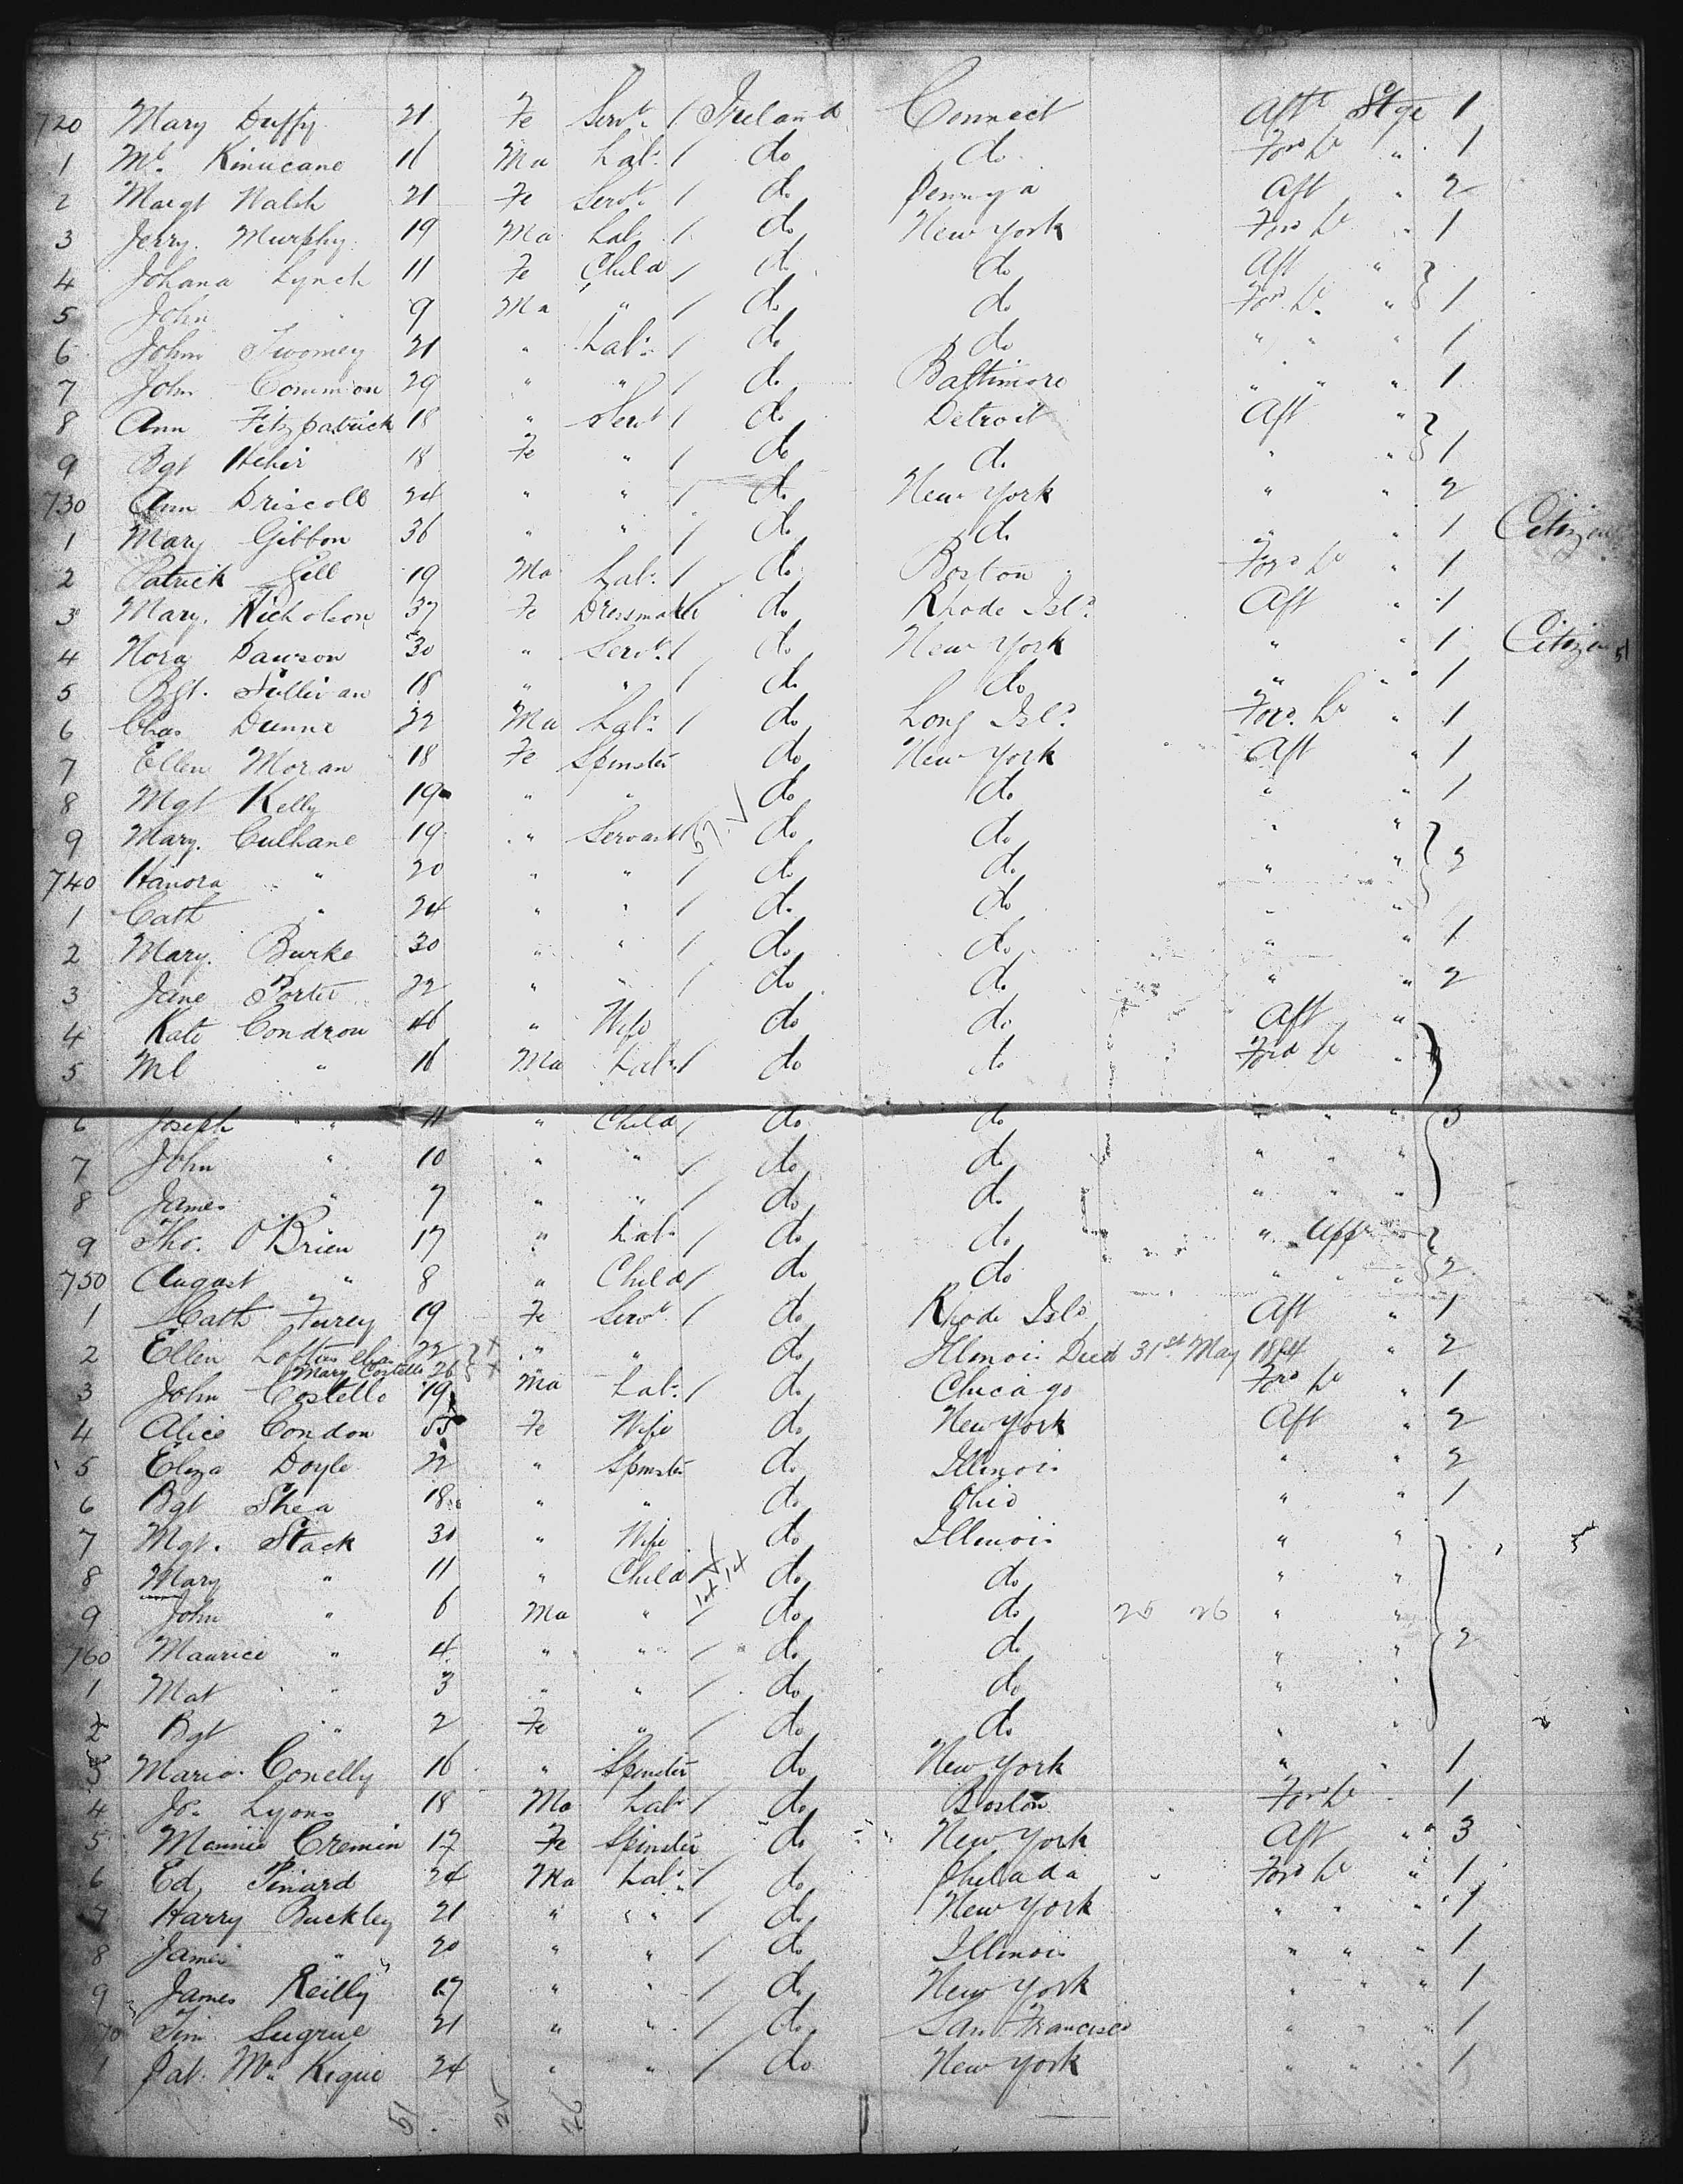 720 Mary Duffy 21 Fe Servt / Ireland Connect Aft Stge 1
1 Ml. Kinucane 16 Ma Labr / do do Ford Lr " 1
2 Margt Walsh 21 Fe Servt / do Pennya Aft " 2
3 Jerry Murphy 19 Ma Lab / do New York Ford Lr " 1
4 Johana Lynch 11 Fe Child / do do Aft "
5 John " 9 Ma " / do do Ford Lr " 1
6 John Twomey 21 " Labr / do do " " " 1
7 John Common 29 " " / do Baltimore " " " 1
8 Ann Fitzpatrick 18 " Servt / do Detroit Aft "
9 Bgt Hehir 18 Fe " / do do " " 1
730 Ann Driscoll 24 " " / do New York " " 2
1 Mary Gibbon 36 " " / do do " " 1 Citizen
2 Patrick Gill 19 Ma Labr / do Boston Ford Lr " 1
3 Mary Nicholson 37 Fe Dressmaker do Rhode Isld Aft " 1
4 Nora Dawson 30 " Servt / do New York " " 1 Citizen 51
5 Bgt. Sullivan 18 " " / do do " " 1
6 Chas Dunne 22 Ma Labr / do Long Isld Ford Lr " 1
7 Ellen Moran 18 Fe Spinster do New York Aft " 1
8 Mgt Kelly 19 " " do do " " 1
9 Mary Culhane 19 " Servant / do do " "
740 Hanora " 20 " " / do do " " 2
1 Cath " 24 " " / do do " "
2 Mary Burke 30 " " / do do " " 1
3 Jane Porter 22 " " / do do " " 2
4 Kate Condron 46 " Wife do do Aft "
5 Ml " 16 Ma Labr / do do Ford Lr "
6 Joseph " 11 " Child / do do " " " 3
7 John " 10 " " / do do " " "
8 James " 7 " " / do do " " "
9 Tho. O'Brien 17 " Labr / do do "
750 August " 8 " Child / do do " " " 2
1 Cath Furey 19 Fe Servt / do Rhode Isld Aft " 1
2 Ellen Loftus 22 " " do Illinois Died 31st May 1884 " 2
Mary Costello 26
3 John Costello 19 Ma Labr / do Chicago Ford Lr " 1
4 Alice Condon 55 Fe Wife do New York Aft " 2
5 Eliza Doyle 22 " Spinster do Illinois " " 2
6 Bgt Shea 18 " " do Ohio " " 1
7 Mgt. Stack 30 " Wife do Illinois " "
8 Mary " 11 " Child / do do " "
9 John " 6 Ma " / do do 25 26 " "
760 Maurice " 4 " " / do do " " 2
1 Mat " 3 " " / do do " "
2 Bgt " 2 Fe " / do do " "
3 Maria Conelly 16 " Spinster do New York " " 1
4 Jo. Lyons 18 Ma Labr / do Boston Ford Lr " 1
5 Mannie Cremin 17 Fe Spinster do New York Aft " 3
6 Ed Pinard 24 Ma Labr / do Philada Ford Lr " 1
7 Harry Buckley 21 " " / do New York " " " 1
8 James " 20 " " / do Illinois " " " 1
9 James Reilly 17 " " / do New York " " " 1
70 Tim Sugrue 21 " " / do San Francisco " " " 1
1 Pat. Mc Kigue 24 " " / do New York " " " 1
51 25 26